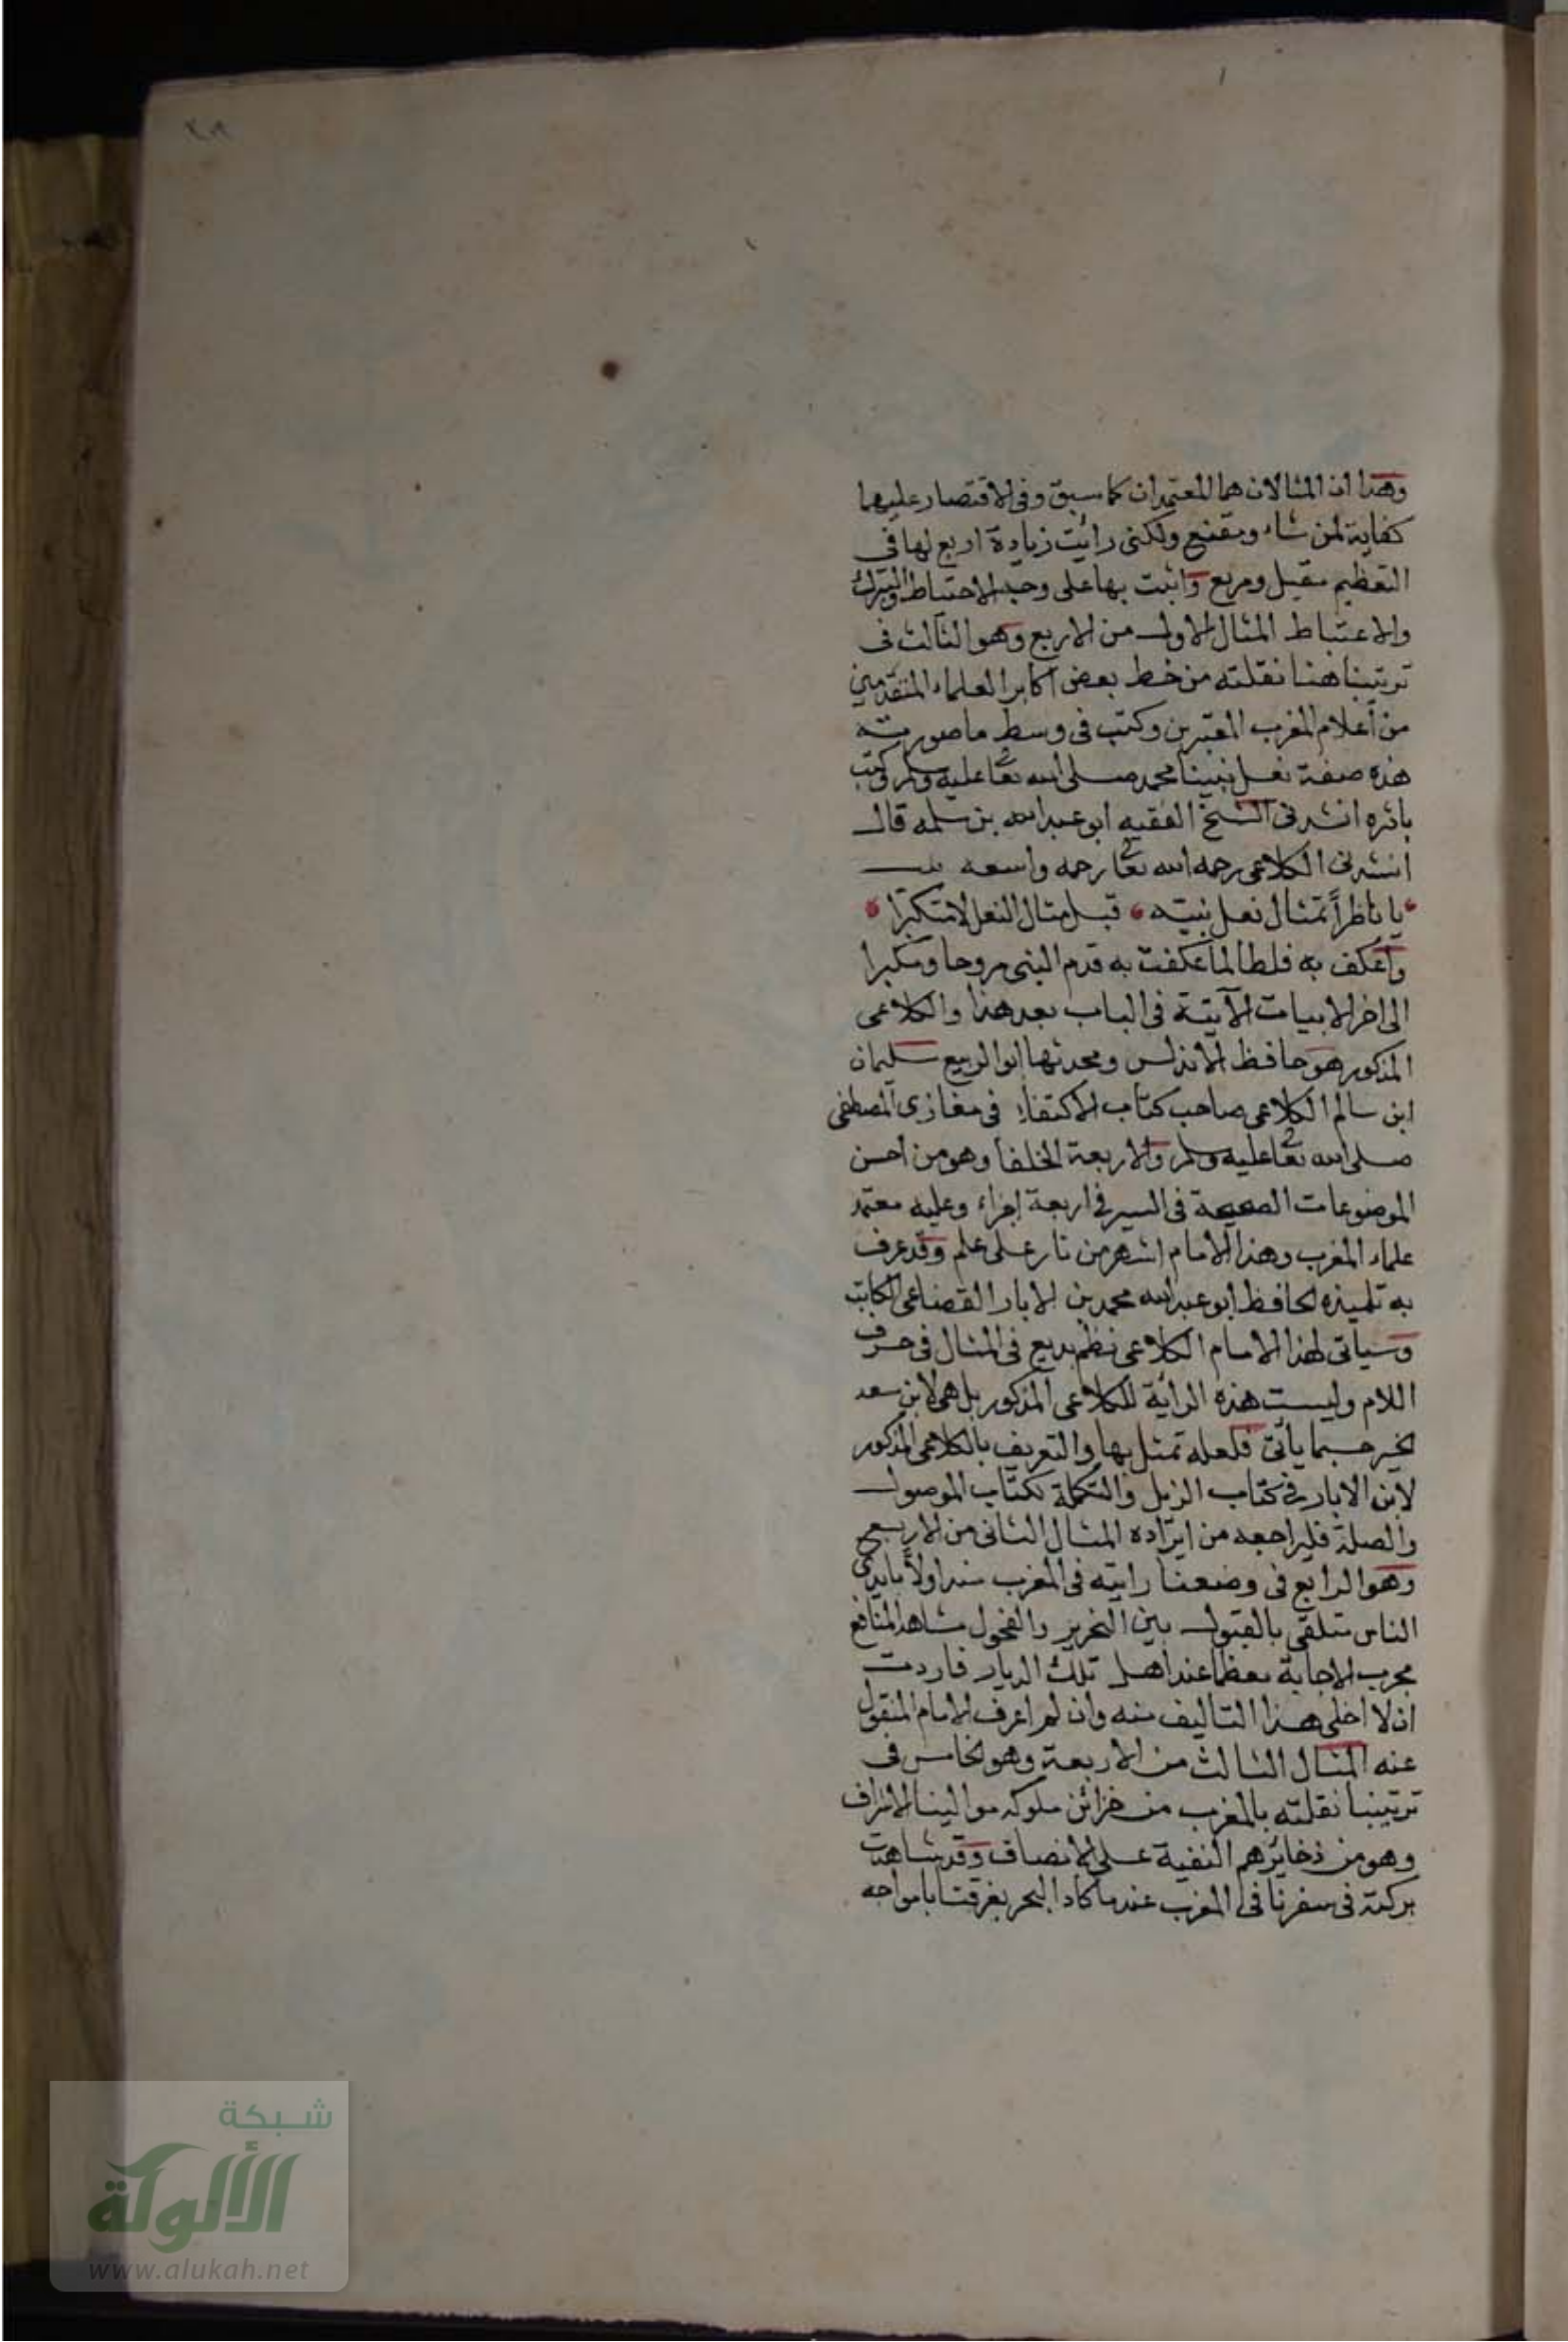 وهذا ان المثالان هما المعتمدان كما سبق وفى الاقتصار عليهما
كفاية لمن شاء ومقنع ولكنى رايت زيادة اربع لها فى
التعظيم مقيل ومربع واتيت بها على وجه الاحتياط والتبرك
والاغتباط المثال الاول من الاربع وهو الثالث فى
ترتيبنا هنا نقلته من خط بعض اكابر العلماء المتقدمين
من أعلام المغرب المعتبرين وكتب فى وسط ما صورته
هذه صفة نعل نبينا محمد صلى الله تعا عليه وسلم وكتب
باثره انشدنى الشيخ الفقيه ابو عبد الله بن سلمه قال
انشدنى الكلاعى رحمه الله تعا رحمه واسعه
يا ناظراً تمثال نعل نبيّه قبل مثال النعل لا متكبّرا
واعكف به فلطالما عكفت به قدم النبى مروحا ومبكرا
الى اخر الابيات الآتية فى الباب بعد هذا والكلاعى
المذكور هو حافظ الاندلس ومحدثها ابو الربيع سليمان
ابن سالم الكلاعى صاحب كتاب الاكتفاء فى مغازى المصطفى
صلى الله تعا عليه وسلم والاربعة الخلفا وهو من أحسن
الموضوعات الصحيحة فى السير فى اربعة اجزاء وعليه معتمد
علماء المغرب وهذا الامام اشهر من نار على علم وقد عرف
به تلميذه الحافظ ابو عبد الله محمد بن الابار القضاعى الكاتب
وسياتى لهذا الامام الكلاعى نظم بديع فى المثال فى حرف
اللام وليست هذه الرائية للكلاعى المذكور بل هى لابن سعد
الخير حسبما يأتى فلعله تمثل بها والتعريف بالكلاعى المذكور
لابن الابار فى كتاب الذيل والتكملة لكتاب الموصول
والصلة فليراجعه من اراده المثال الثانى من الاربع
وهو الرابع فى وضعنا رايته فى المغرب متداولا بايدى
الناس متلقى بالقبول بين النحرير والفحول مشاهد المنافع
مجرب الاجابة معظما عند اهل تلك الديار فاردت
ان لا اخلى هذا التاليف منه وان لم اعرف الامام المنقول
عنه المثال الثالث من الاربعة وهو الخامس فى
ترتيبنا نقلته بالمغرب من خزائن ملوكه موالينا الاشراف
وهو من ذخائرهم النفية على الانصاف وقد شاهدت
بركته فى سفرنا فى المغرب عندما كاد البحر يغرقنا بامواجه
شبكة
الألوكة
www.alukah.net